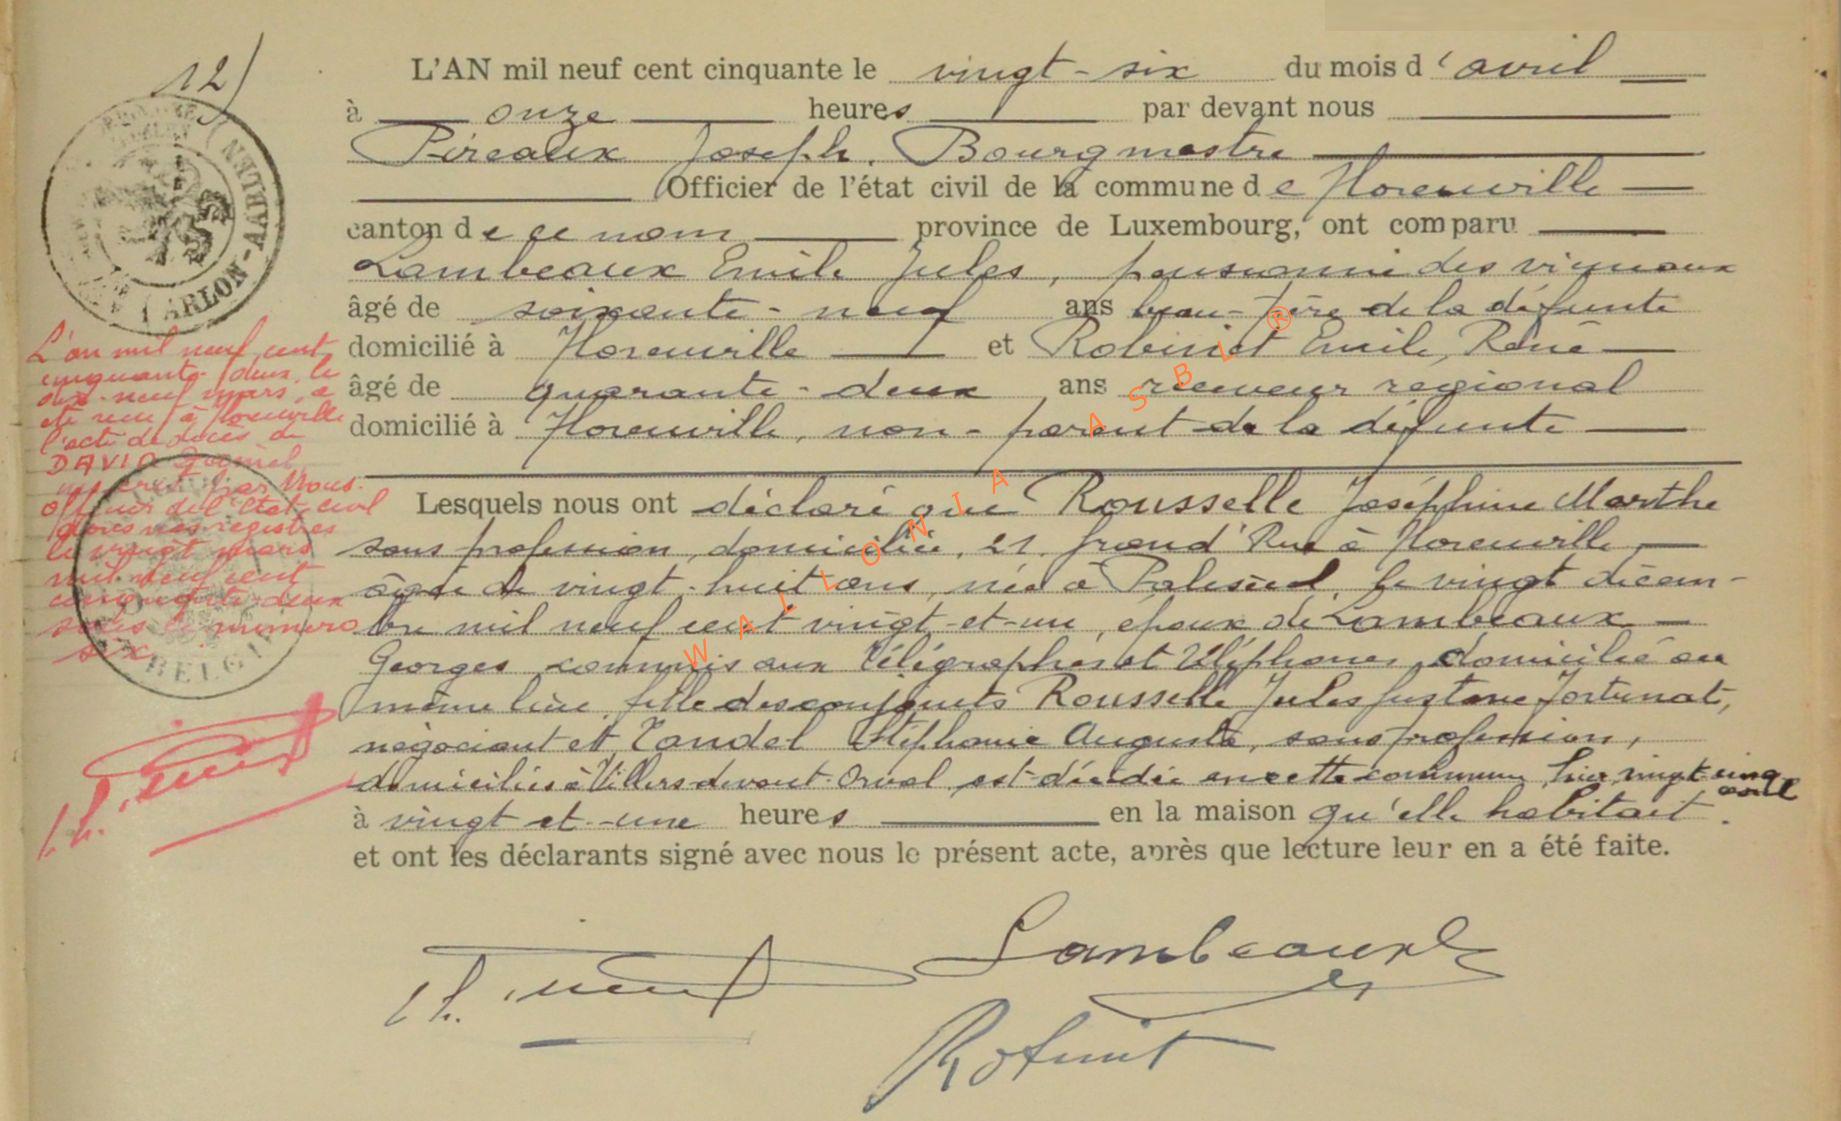 12)
L'AN mil neuf cent cinquante le vingt-six du mois d'avril
à onze heures par devant nous
Pireaux Joseph, Bourgmestre
Officier de l'état civil de la commune de Florenville
canton de ce nom province de Luxembourg, ont comparu
Lambeaux Emile Jules, pensionné des vicinaux
âgé de soixante-neuf ans beau-père de la défunte
domicilié à Florenville et Robinet Emile, René
âgé de quarante-deux ans receveur régional
domicilié à Florenville, non-parent de la défunte
Lesquels nous ont déclaré que Rousselle Joséphine Marthe
sans profession, domiciliée, 21, grand'Rue à Florenville
âgée de vingt-huit ans, née à Paliseul, le vingt décem-
bre mil neuf cent vingt-et-un, épouse de Lambeaux
Georges commis aux Télégraphes et Téléphones, domicilié au
même lieu, fille des conjoints Rousselle Jules Gustave Fortunat,
négociant et Tandel Stéphanie Augusta, sans profession,
domiciliés à Villers devant Orval, est décédée en cette commune, hier vingt-cinq
avril
à vingt et une heures en la maison qu'elle habitait.
et ont les déclarants signé avec nous le présent acte, après que lecture leur en a été faite.
L'an mil neuf cent
cinquante-deux, le
dix-neuf mars, a
été reçu à Florenville
l'acte de décès de
DAVID
par Nous
Officier de l'Etat-civil
dans nos registres
le vingt mars
mil neuf cent
cinquante-deux
sous le numéro
six.
ARLON
BELGI
WALLONIA ASBL ®
Lambeaux
Robinet